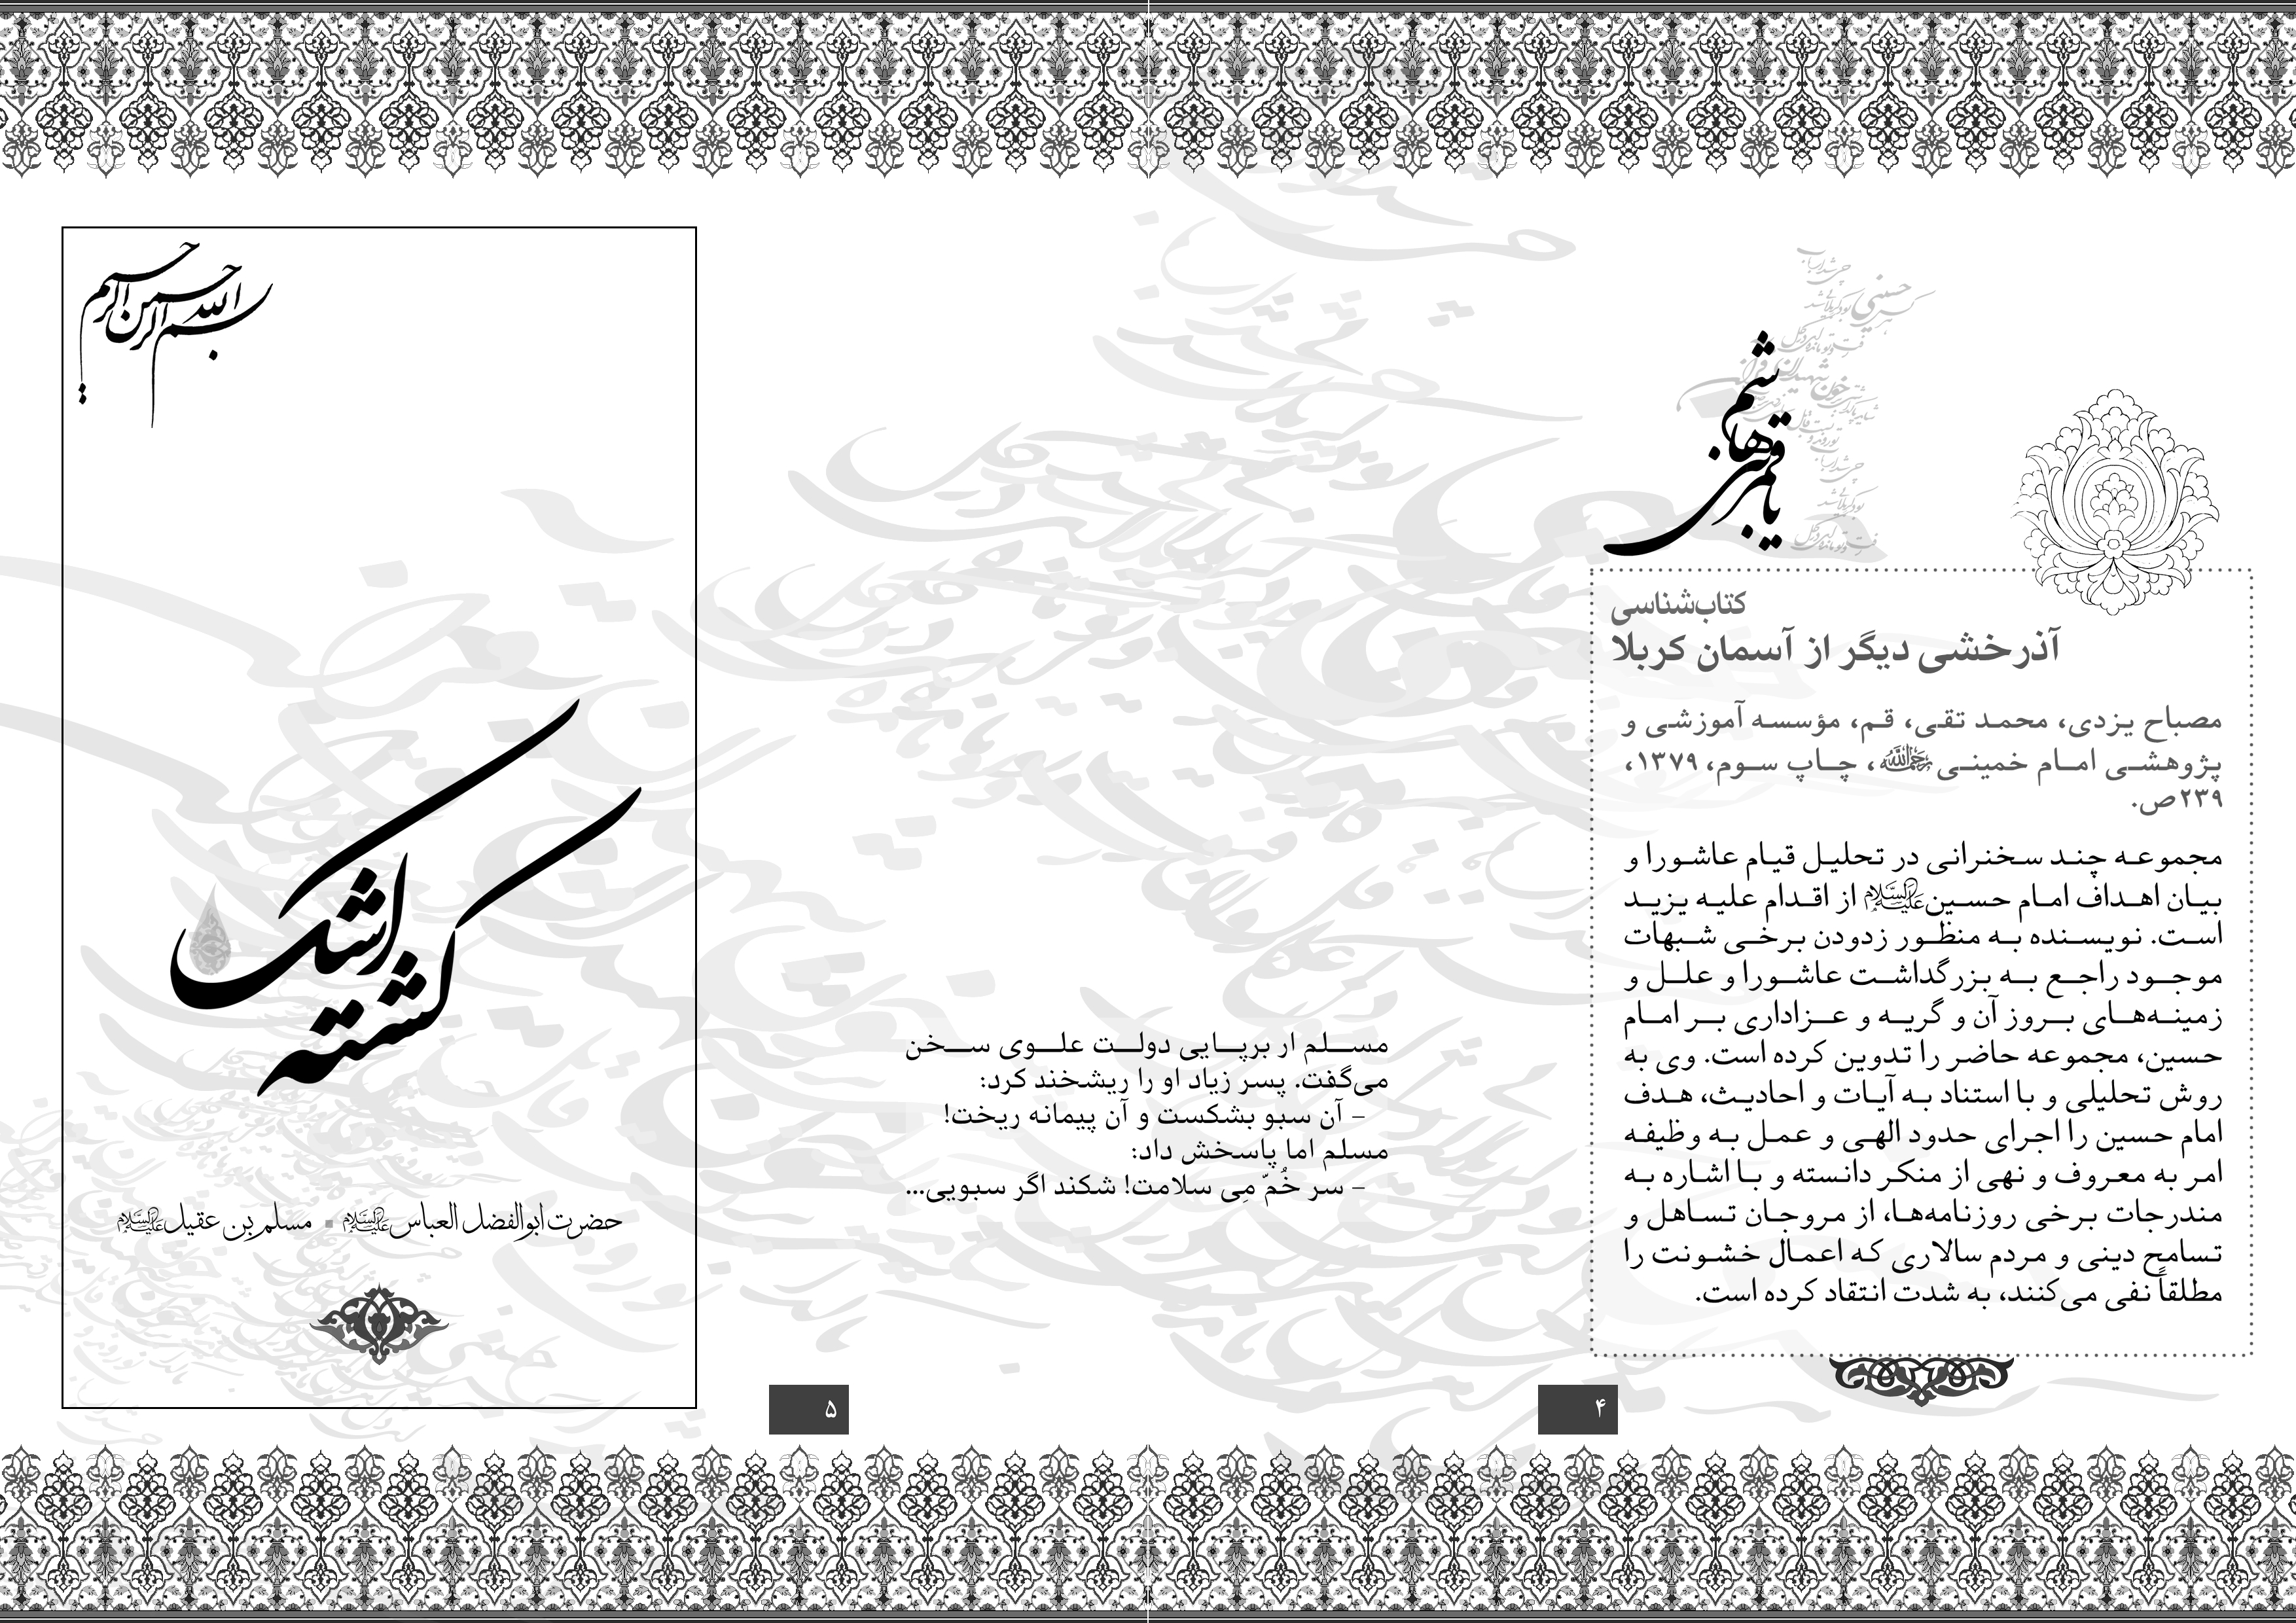 یا قمر بنی هاشم
کتاب‌شناسی
آذرخشی دیگر از آسمان کربلا
مصباح یزدی، محمد تقی، قم، مؤسسه آموزشی و
پژوهشی امام خمینی رحمه‌الله، چاپ سوم، ۱۳۷۹،
۲۳۹ص.
مجموعه چند سخنرانی در تحلیل قیام عاشورا و
بیان اهداف امام حسین علیه‌السلام از اقدام علیه یزید
است. نویسنده به منظور زدودن برخی شبهات
موجود راجع به بزرگداشت عاشورا و علل و
زمینه‌های بروز آن و گریه و عزاداری بر امام
حسین، مجموعه حاضر را تدوین کرده است. وی به
روش تحلیلی و با استناد به آیات و احادیث، هدف
امام حسین را اجرای حدود الهی و عمل به وظیفه
امر به معروف و نهی از منکر دانسته و با اشاره به
مندرجات برخی روزنامه‌ها، از مروجان تساهل و
تسامح دینی و مردم سالاری که اعمال خشونت را
مطلقاً نفی می‌کنند، به شدت انتقاد کرده است.
۴
مسلم ار برپایی دولت علوی سخن
می‌گفت. پسر زیاد او را ریشخند کرد:
– آن سبو بشکست و آن پیمانه ریخت!
مسلم اما پاسخش داد:
– سر خُمّ مِی سلامت! شکند اگر سبویی...
۵
بسم الله الرحمن الرحیم
کشته اشک
حضرت ابوالفضل العباس علیه‌السلام ▪ مسلم بن عقیل علیه‌السلام